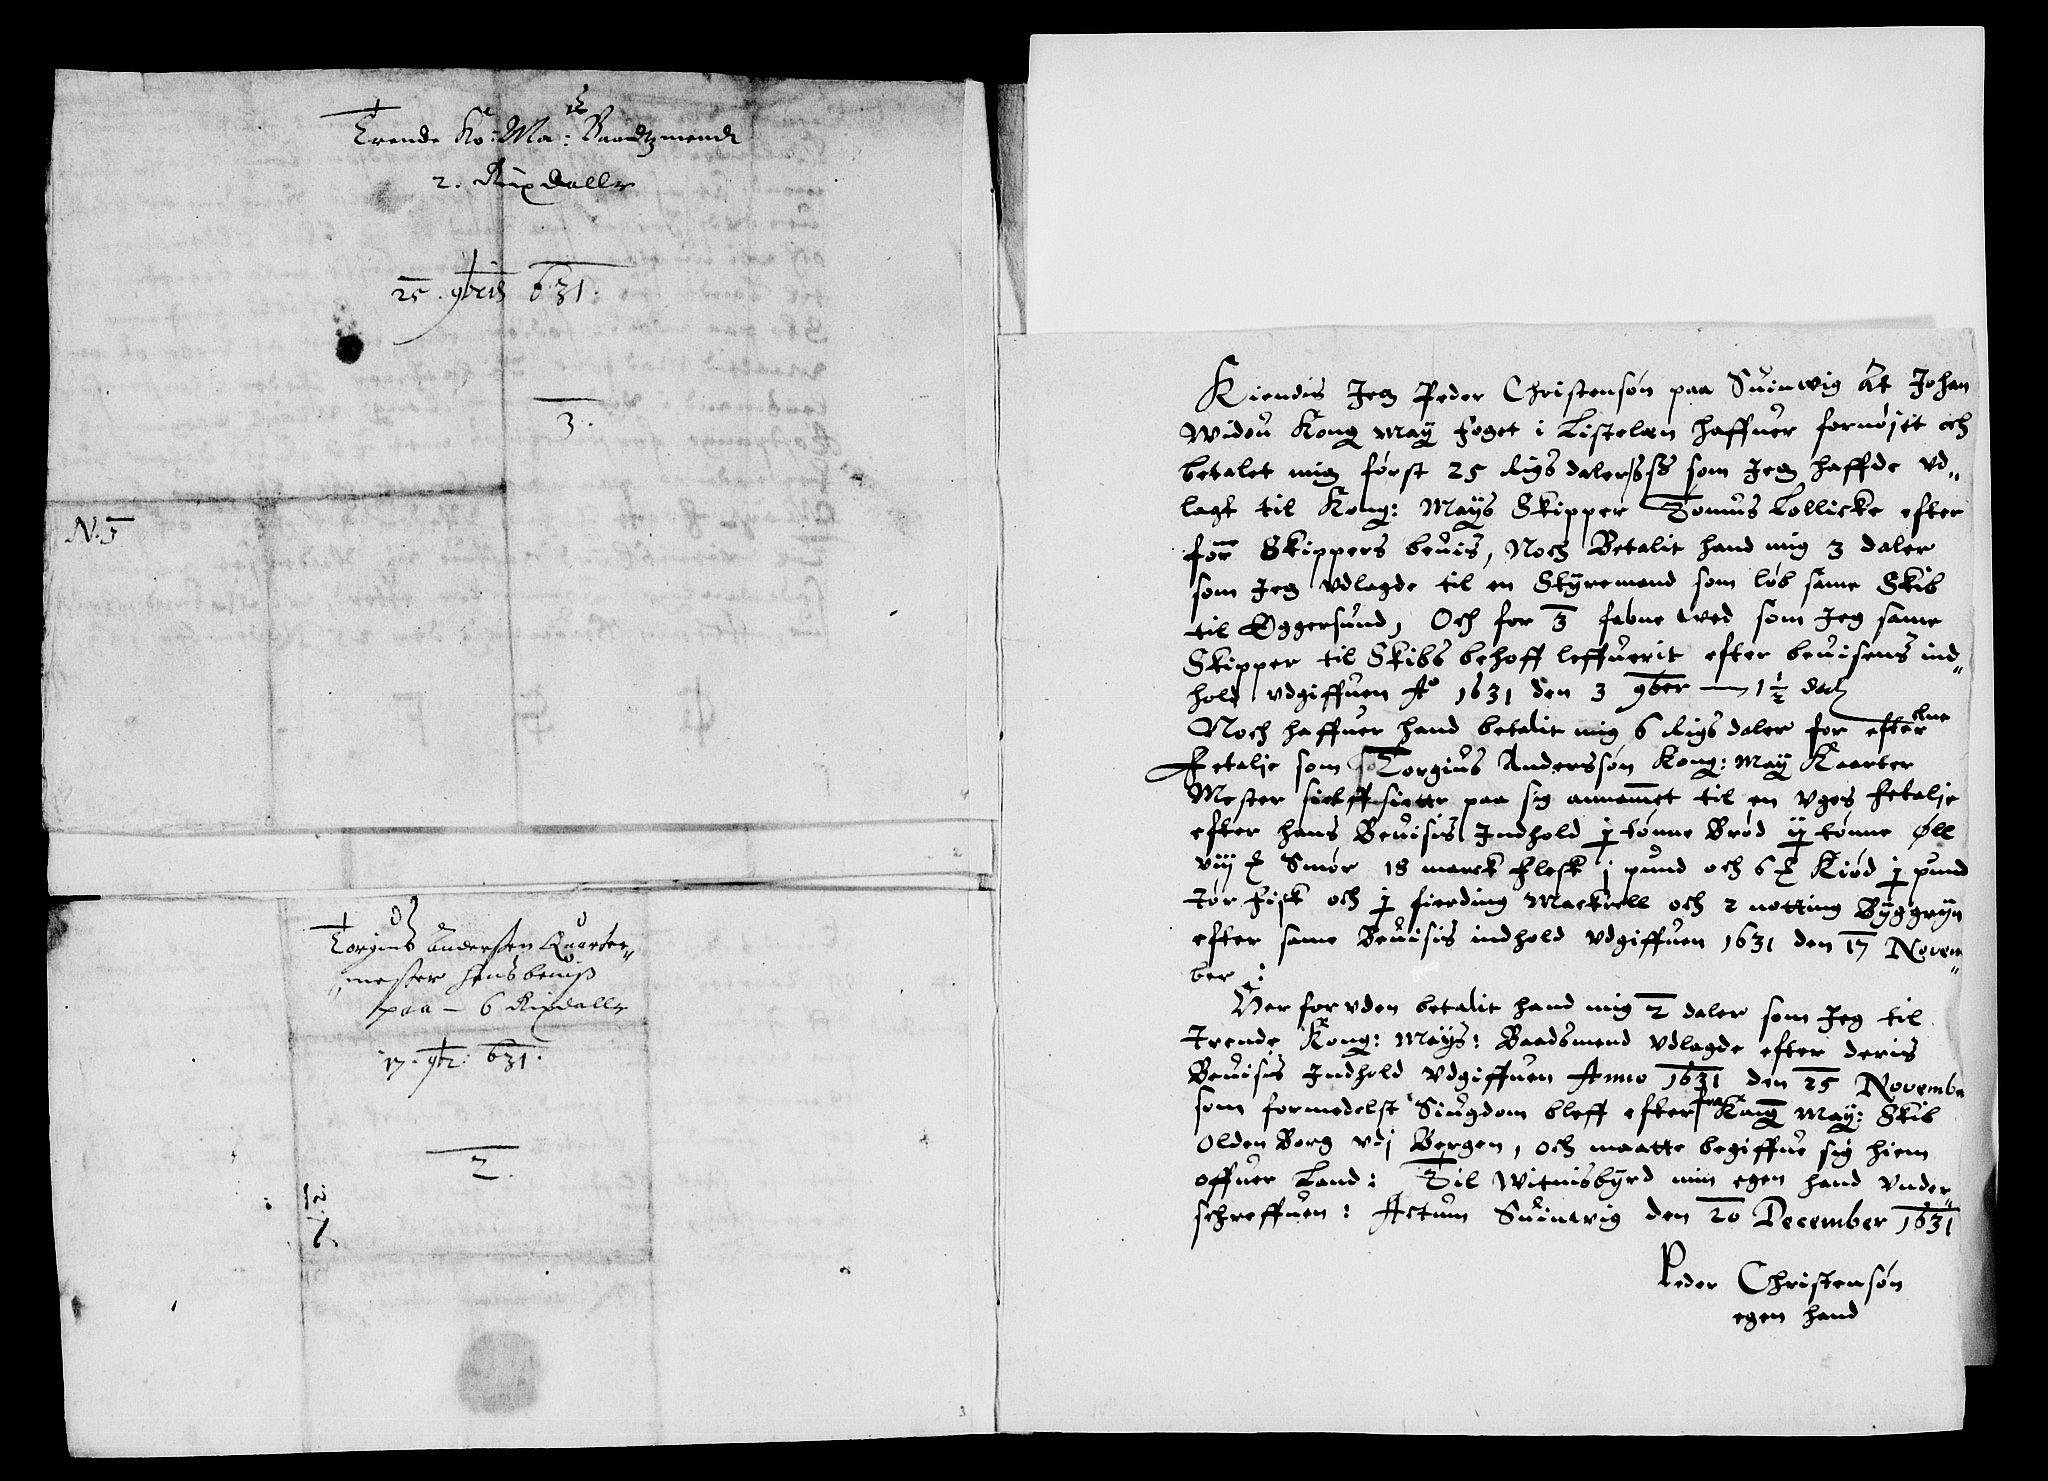 Trende Ko: Ma: Baadtzmend
2. Rixdaller
25. 9bris 631.
3.
N. 5
Torgius Andersen Quarteer-
mester hans beuiss
paa - 6 Rixdaller
17. 9br: 631.
2.
Kiendis Jeg Peder Christensøn paa Suinwig At Johan
Widou Kong May foget i Listelæn haffuer fornøjet och
betalet mig først 25 Rigs daler som Jeg haffde vd„
lagt til Kong: Mays Skipper Tomus Lollicke efter
forne Skippers beuis, Noch Betalit hand mig 3 daler
som Jeg vdlagde til en Styremand som løb same Skib
til Eggersund, Och for 3 fabne wed som Jeg same
Skipper til Skibs behoff leffuerit efter beuisens ind„
hold vdgiffuen Ao 1631 den 3 9ber — 1 1/2 dal
Noch haffuer hand betalit mig 6 Rigs daler for efterskne
Fetalje som Torgius Anderssøn Kong: May Kaarter
Mester sielff siette paa sig annamet til en vges fetalje
efter hans Beuisis Indhold j tønne Brød ij tønne Øll
viij ℔ Smør 18 marck flesk j pund och 6 ℔ Kiød j pund
Tør Fisk och j fierding Mackrell och 2 notting Byggryn
efter same Beuisis indhold vdgiffuen 1631 den 17 Novem„
ber :
Her for vden betalit hand mig 2 daler som Jeg til
Trende Kong: Mays: Baadsmend vdlagde efter deris
Beuisis Indhold vdgiffuen Anno 1631 den 25 Novembe
som formedelst Siugdom bleff efter fra Kong May: Skib
Olden Borg vdj Bergen, och maatte begiffue sig hiem
offuer Land: Til Witnisbyrd min egen hand vnder„
schreffuen: Actum Suinwig den 20 December 1631
Peder Christensøn
egen hand